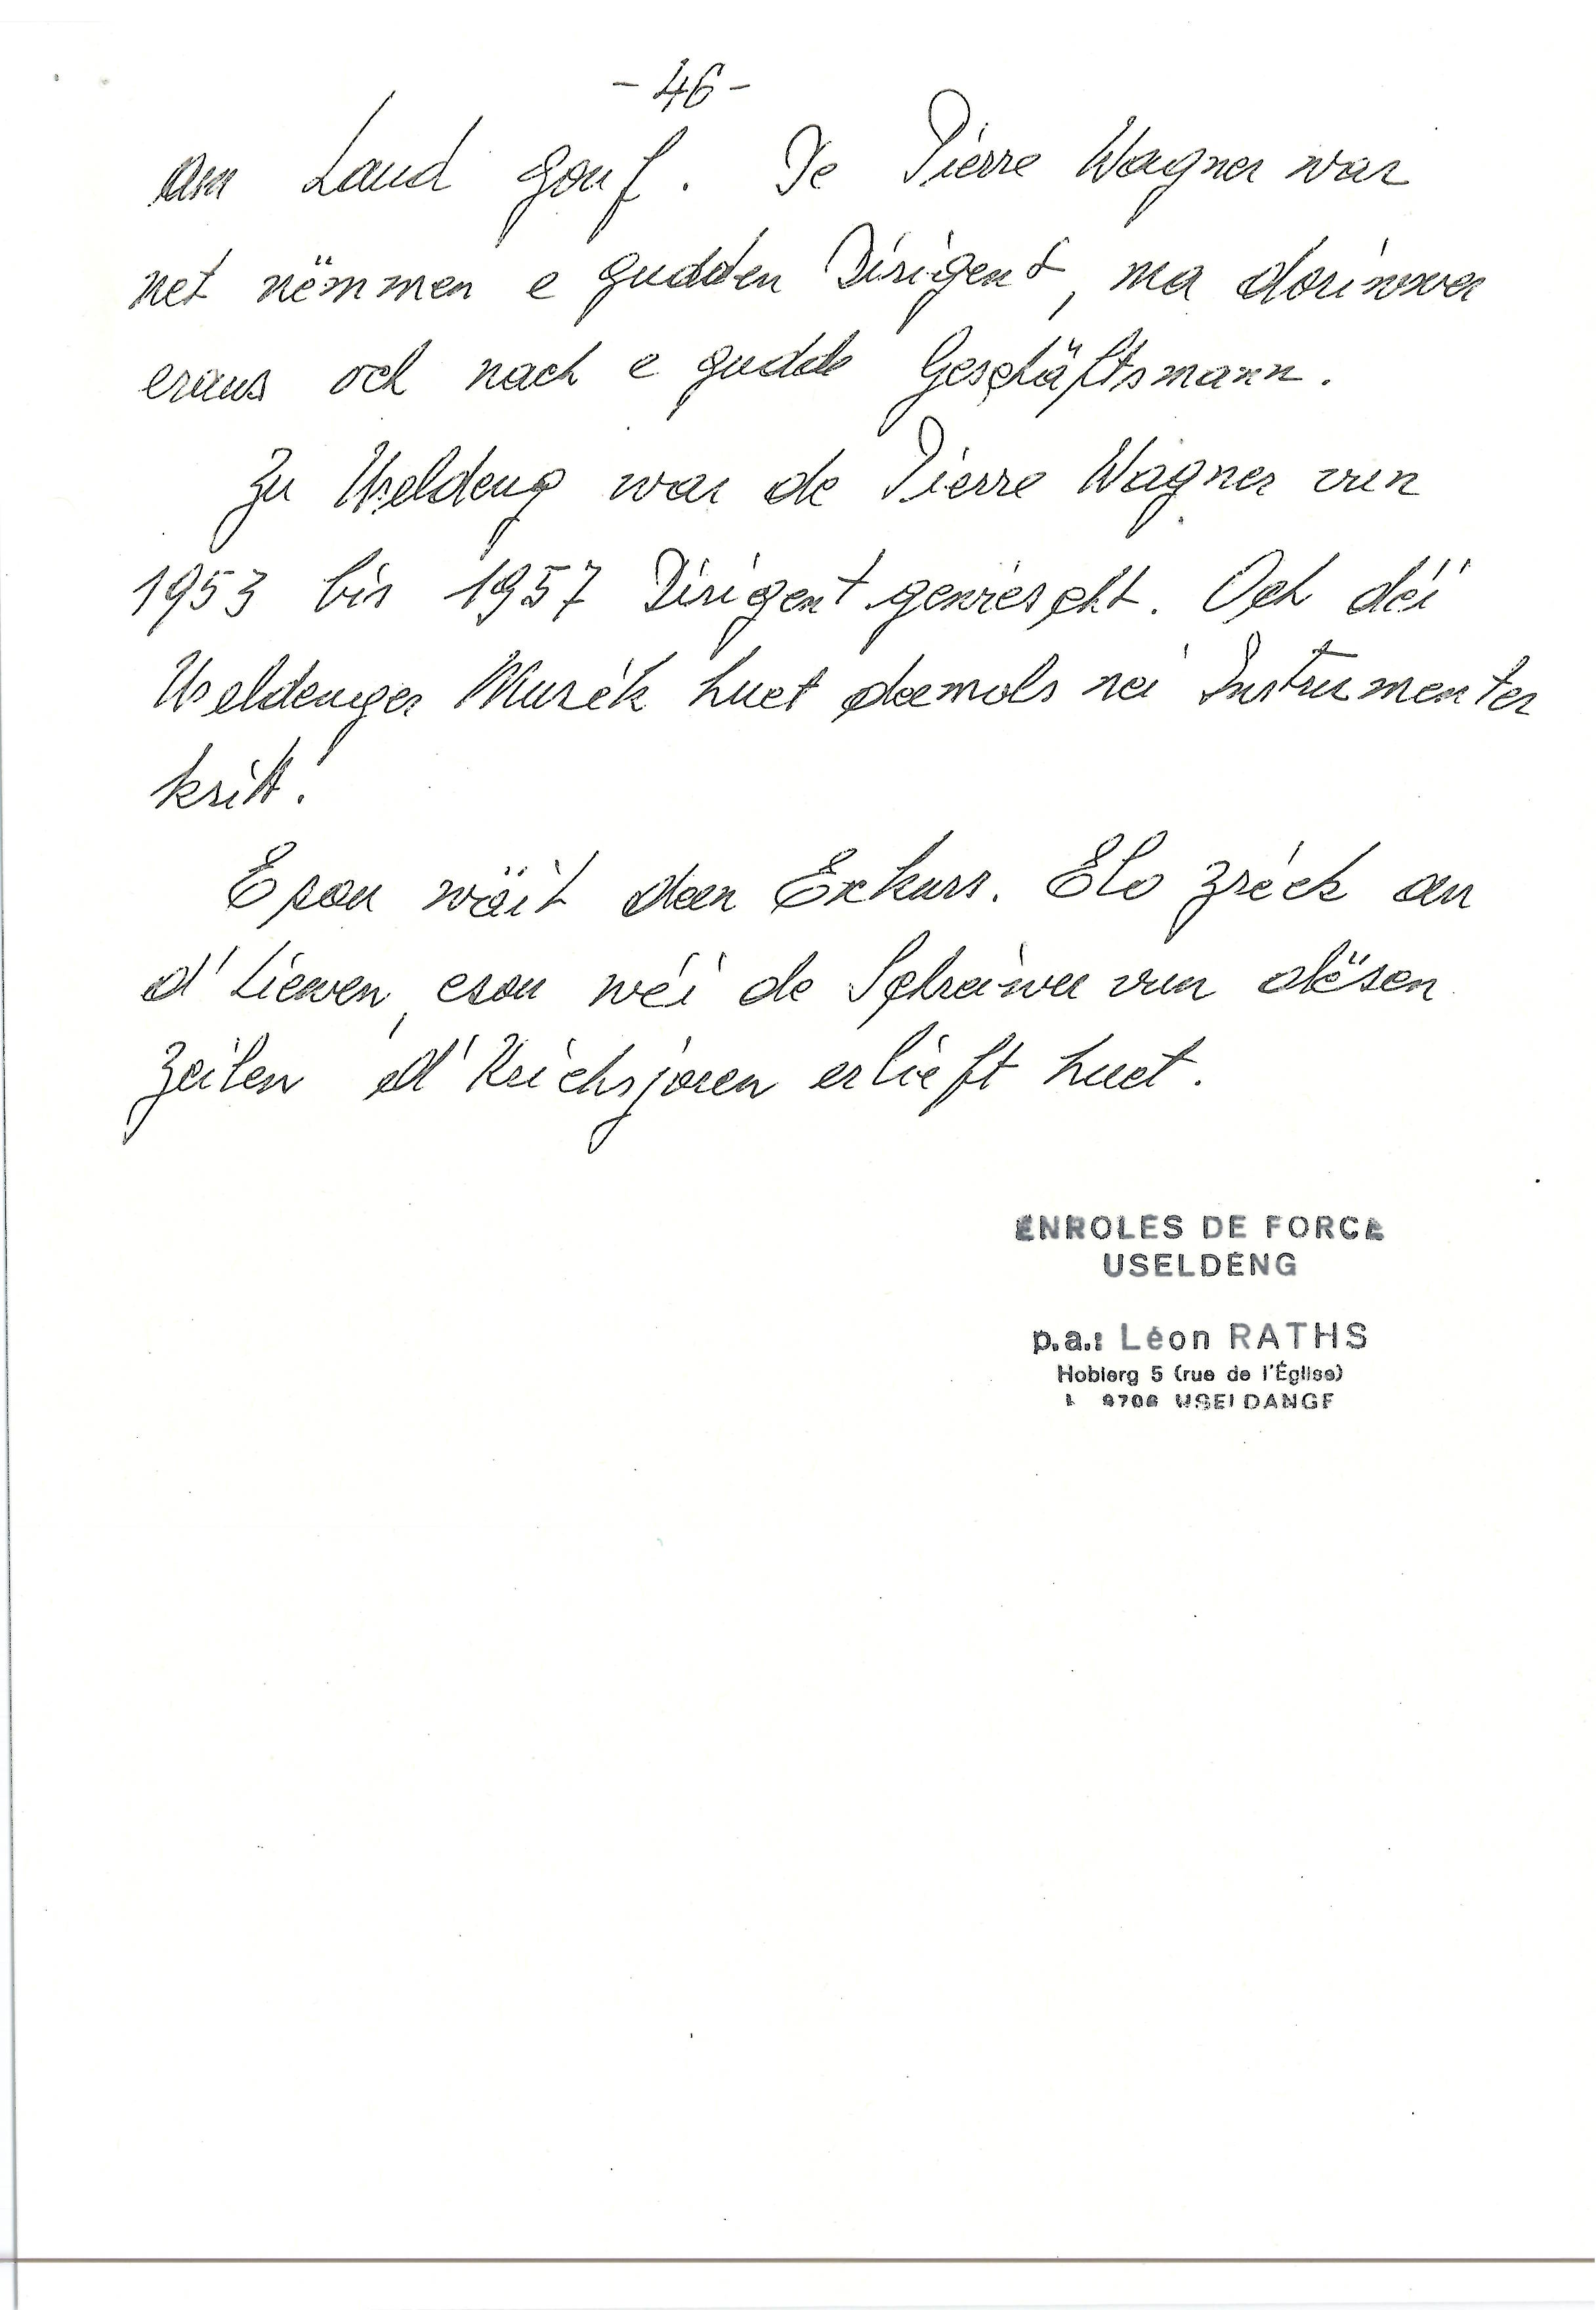 - 46 -
am Land gouf. De Pierre Wagner war
net nëmmen e gudden Dirigent, ma doriwwer
eraus och nach e gudde Geschäftsmann.
Zu Useldeng war de Pierre Wagner vun
1953 bis 1957 Dirigent gewiescht. Och déi
Useldenger Musék huet deemols nei Instrumenter
kritt!
Esou wäit den Exkurs. Elo zréck an
d'Liewen, esou wéi de Schreiwer vun dësen
Zeilen d'Krichsjoren erlieft huet.
ENROLES DE FORCE
USELDENG
p.a.: Léon RATHS
Hobierg 5 (rue de l'Église)
L 8706 USELDANGE